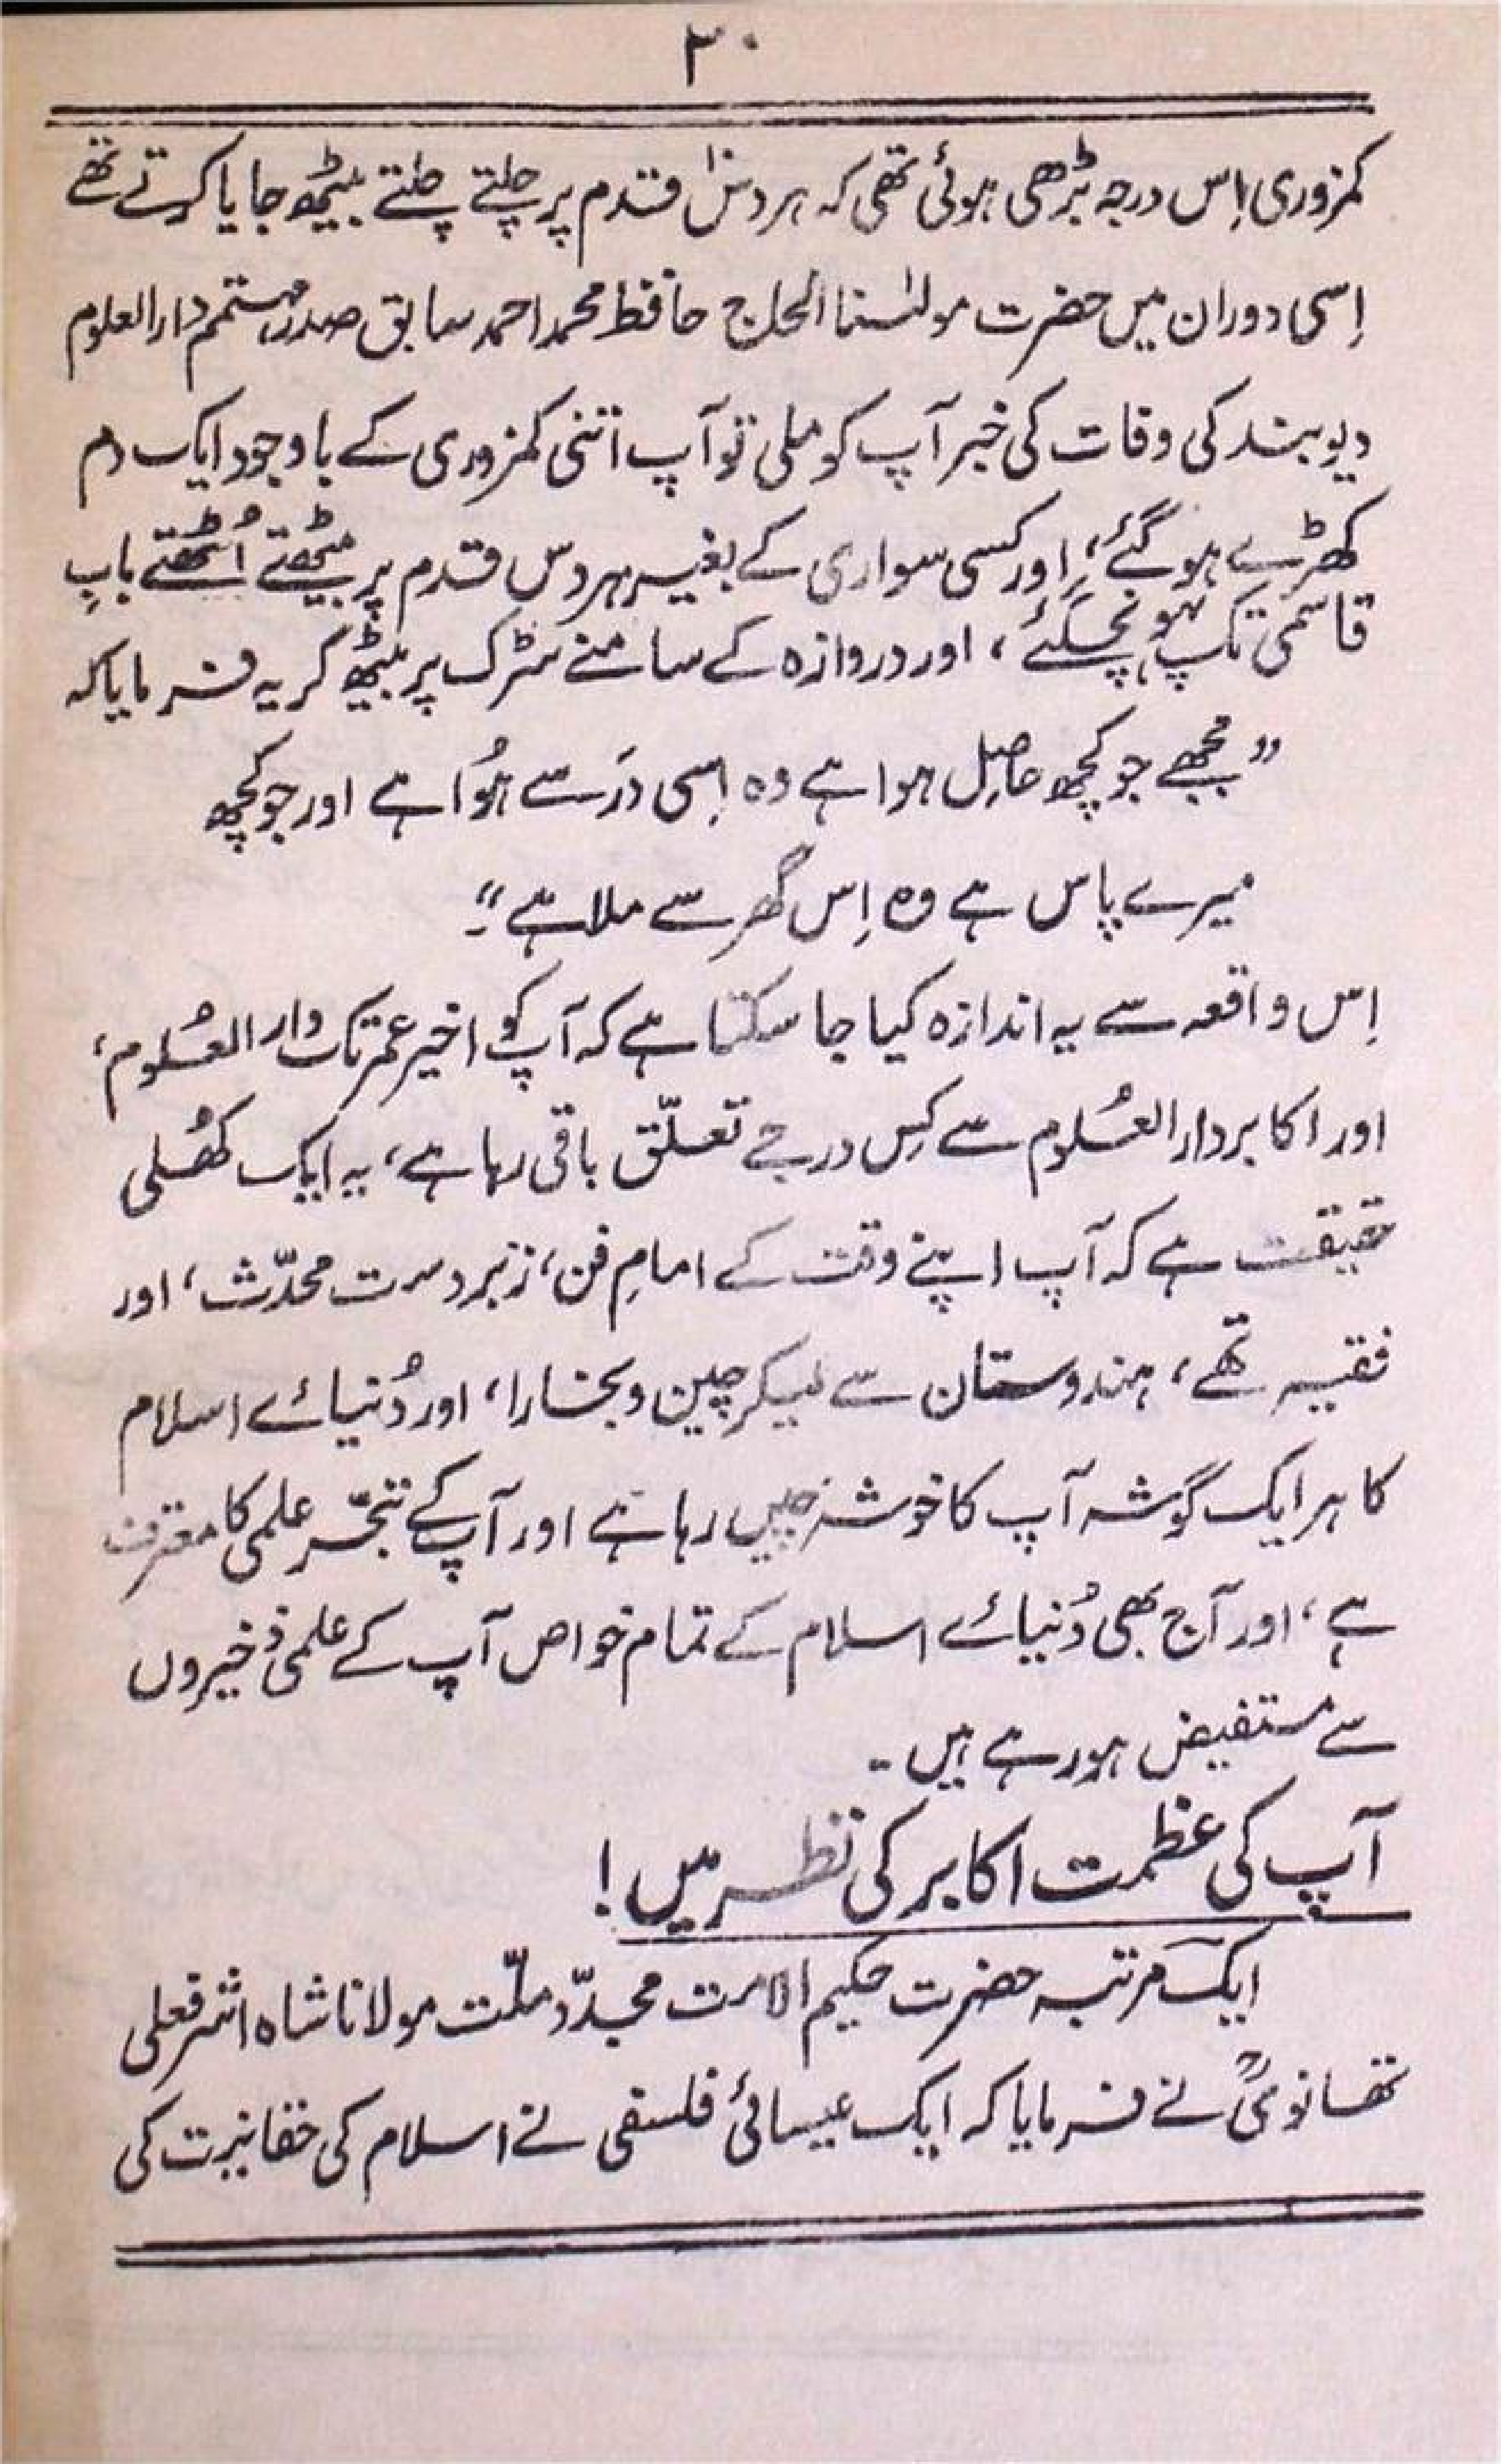 ۳۰
کمزوری اِس درجہ بڑھی ہوئی تھی کہ ہر دس قدم پر چلتے چلتے بیٹھ جایا کرتے تھے
اِسی دوران میں حضرت مولٰسنا الحاج حافظ محمد احمد سابق صدر مہتمم دارالعلوم
دیوبند کی وفات کی خبر آپ کو ملی تو آپ اتنی کمزوری کے باوجود ایک دم
کھڑے ہو گئے، اور کسی سواری کے بغیر ہر دس قدم پر بیٹھتے اُٹھتے بابِ
قاسمی تک پہونچ گئے، اور دروازہ کے سامنے سڑک پر بیٹھ کر یہ فرمایا کہ
”مجھے جو کچھ حاصِل ہوا ہے وہ اِسی دَر سے ہُوا ہے اور جو کچھ
میرے پاس ہے وہ اِس گھر سے ملا ہے“۔
اِس واقعہ سے یہ اندازہ کیا جا سکتا ہے کہ آپ کو اخیر عمر تک دار العُلوم،
اور اکابر دار العُلوم سے کِس درجے تعلّق باقی رہا ہے، یہ ایک کھُلی
حقیقت ہے کہ آپ اپنے وقت کے امامِ فن، زبردست محدّث، اور
فقیہ تھے، ہندوستان سے لیکر چین و بخارا، اور دُنیائے اسلام
کا ہر ایک گوشہ آپ کا خوشہ چیں رہا ہے اور آپ کے تبحّر علمی کا معترف
ہے، اور آج بھی دُنیائے اسلام کے تمام خواص آپ کے علمی ذخیروں
سے مستفیض ہو رہے ہیں۔
آپ کی عظمت اکابر کی نظر میں!
ایک مرتبہ حضرت حکیم الامت مجدّد ملّت مولانا شاہ اشرفعلی
تھانویؒ نے فرمایا کہ ایک عیسائی فلسفی نے اسلام کی حقانیت کی